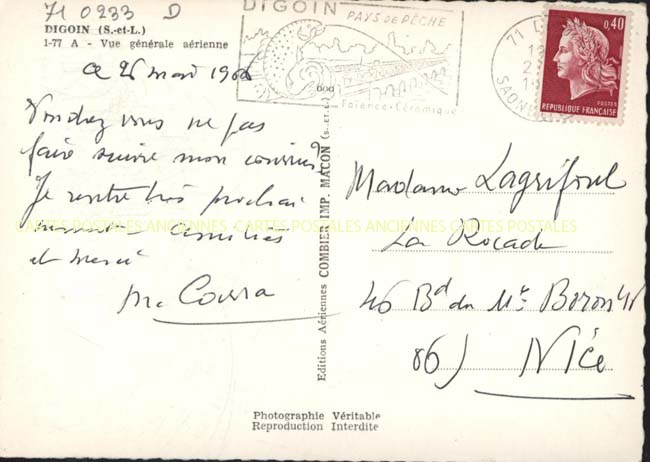 71 0233 D
DIGOIN (S.-et-L.)
1-77 A - Vue générale aérienne
DIGOIN
PAYS DE PÊCHE
Faïence-Céramique
71 D
SAON
0,40
POSTES
REPUBLIQUE FRANÇAISE
Ce 26 mai 19
Voudrez vous ne pas
faire suivre mon courrier
Je rentre très prochai
nement amitiés
et merci
Editions Aériennes COMBIER IMP. MACON (S.-et-L.)
Madame Lagrifoul
La Rocade
46 Bd du Mt Boron
06) NICE
CARTES POSTALES ANCIENNES CARTES POSTALES ANCIENNES CARTES POSTALES
Photographie Véritable
Reproduction Interdite